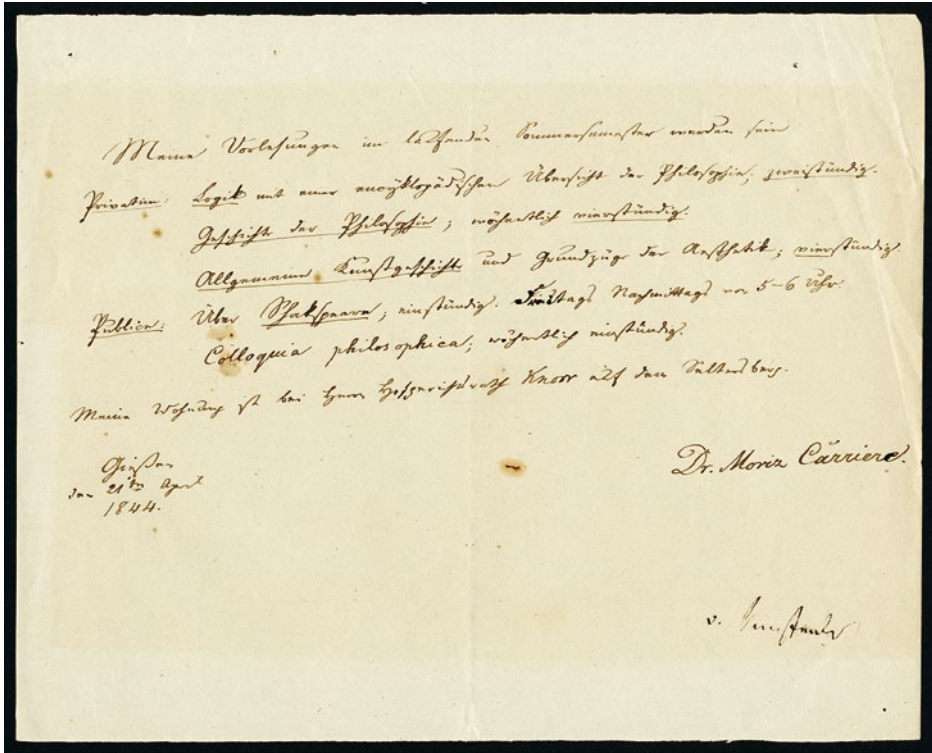 Meine Vorlesungen im laufenden Sommersemester werden sein
Privatim: Logik mit einer encyklopädischen Übersicht der Philosophie; zweistündig.
Geschichte der Philosophie; wöchentlich vierstündig.
Allgemeine Kunstgeschichte und Grundzüge der Aesthetik; vierstündig.
Publice: Über Shakspeare; einstündig. Freitags Nachmittags von 5-6 Uhr.
Colloquia philosophica; wöchentlich einstündig.
Meine Wohnung ist bei Herrn Hofgerichtsrath Knorr auf dem Seltersberg.
Gießen
den 21ten April
1844.
Dr. Moriz Carriere.
v.